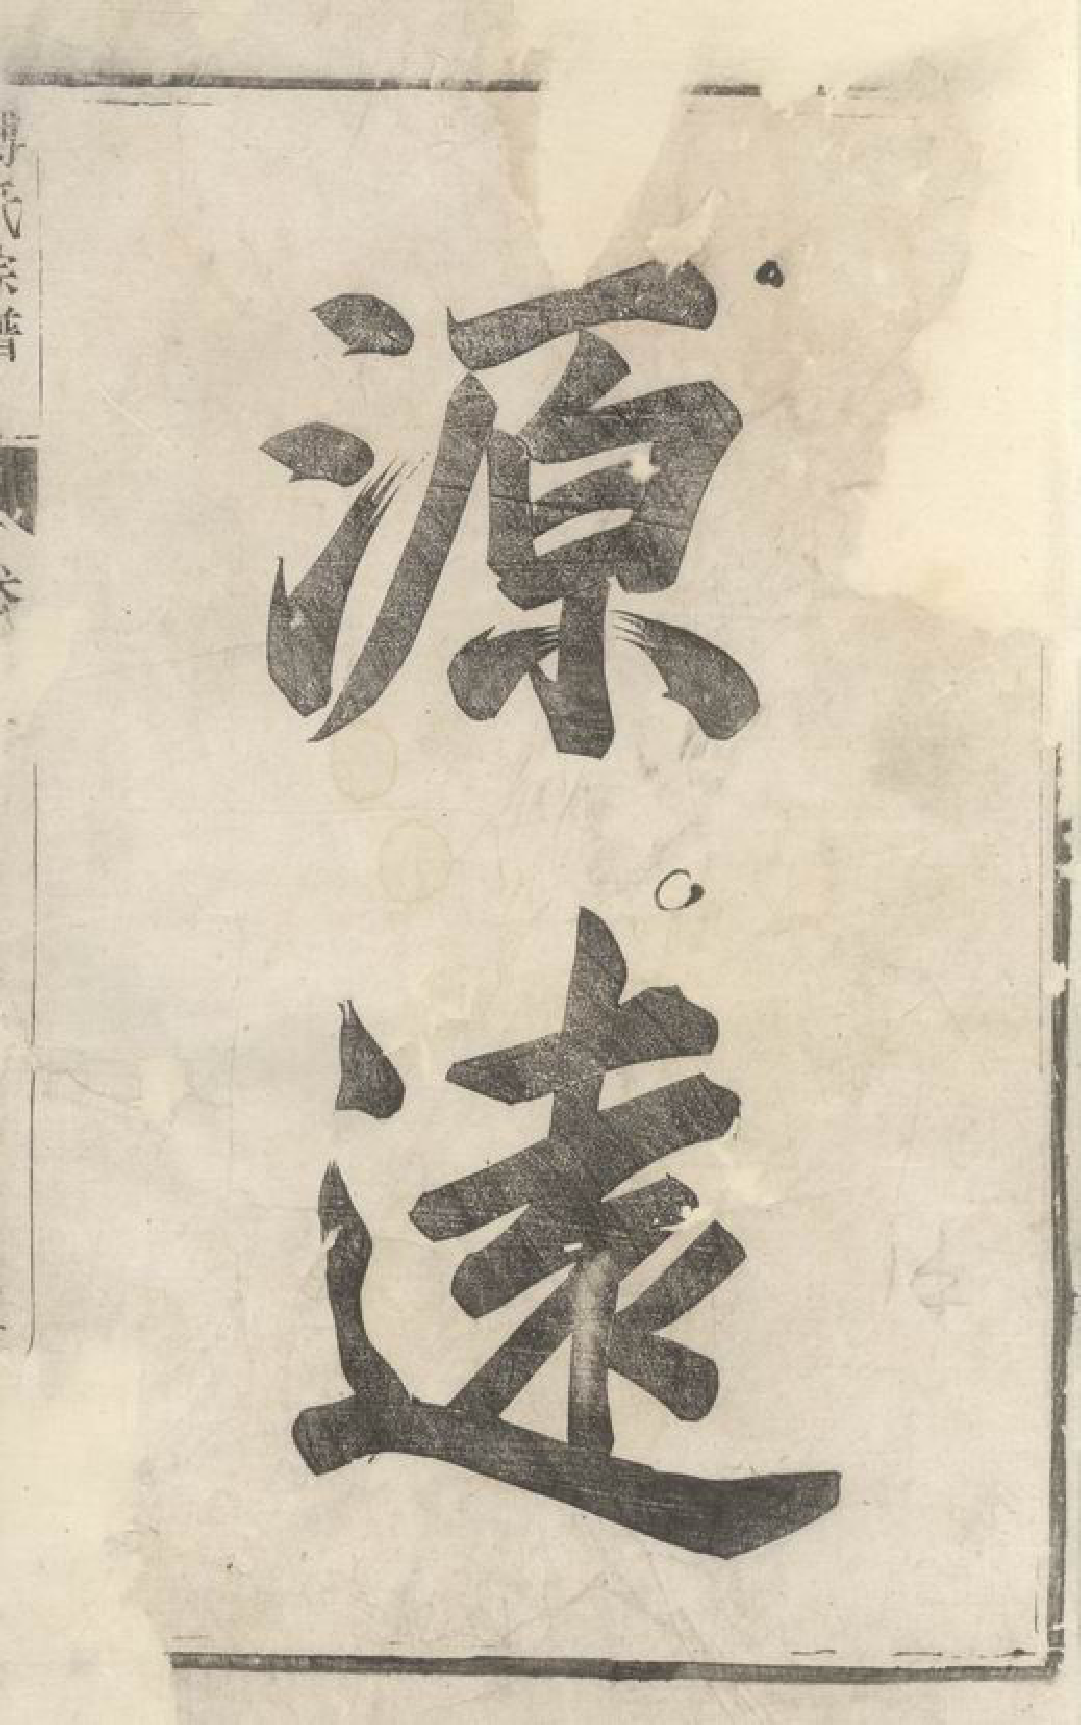 源遠
氏宗譜
卷